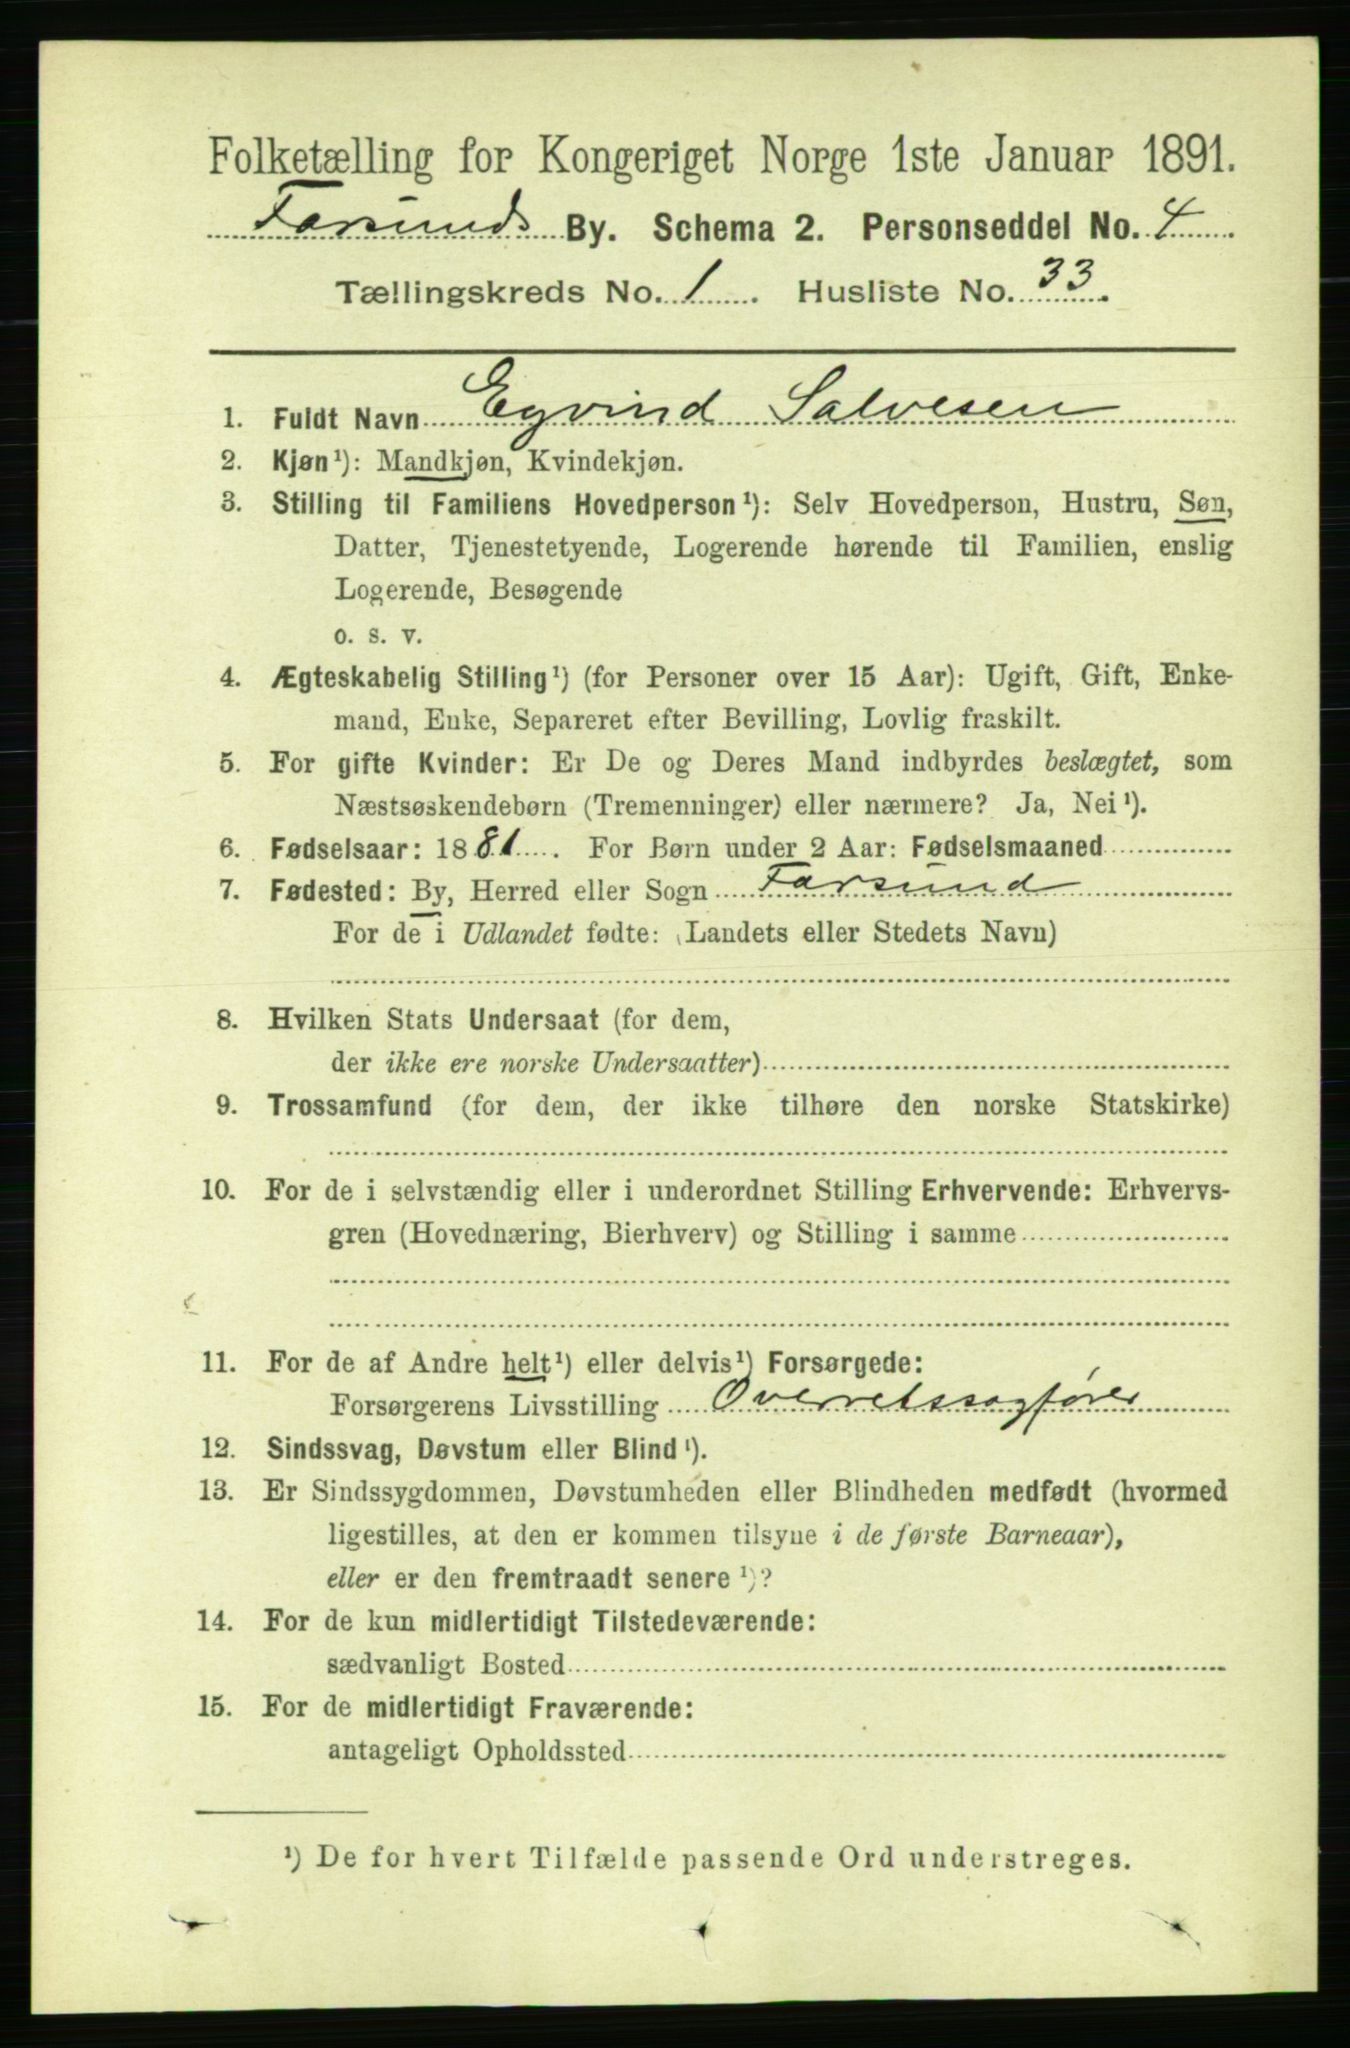 Folketælling for Kongeriget Norge 1ste Januar 1891.
Farsunds By. Schema 2. Personseddel No. 4
Tællingskreds No. 1. Husliste No. 33.
1. Fuldt Navn Eyvind Salvesen
2. Kjøn¹): Mandkjøn, Kvindekjøn.
3. Stilling til Familiens Hovedperson¹): Selv Hovedperson, Hustru, Søn,
Datter, Tjenestetyende, Logerende hørende til Familien, enslig
Logerende, Besøgende
o. s. v.
4. Ægteskabelig Stilling¹) (for Personer over 15 Aar): Ugift, Gift, Enke-
mand, Enke, Separeret efter Bevilling, Lovlig fraskilt.
5. For gifte Kvinder: Er De og Deres Mand indbyrdes beslægtet, som
Næstsøskendebørn (Tremenninger) eller nærmere? Ja, Nei¹).
6. Fødselsaar: 1881. For Børn under 2 Aar: Fødselsmaaned
7. Fødested: By, Herred eller Sogn Farsund
For de i Udlandet fødte: (Landets eller Stedets Navn)
8. Hvilken Stats Undersaat (for dem,
der ikke ere norske Undersaatter)
9. Trossamfund (for dem, der ikke tilhøre den norske Statskirke)
10. For de i selvstændig eller i underordnet Stilling Erhvervende: Erhvervs-
gren (Hovednæring, Bierhverv) og Stilling i samme
11. For de af Andre helt¹) eller delvis¹) Forsørgede:
Forsørgerens Livsstilling Overretssagfører
12. Sindssvag, Døvstum eller Blind¹).
13. Er Sindssygdommen, Døvstumheden eller Blindheden medfødt (hvormed
ligestilles, at den er kommen tilsyne i de første Barneaar),
eller er den fremtraadt senere¹)?
14. For de kun midlertidigt Tilstedeværende:
sædvanligt Bosted
15. For de midlertidigt Fraværende:
antageligt Opholdssted
¹) De for hvert Tilfælde passende Ord understreges.